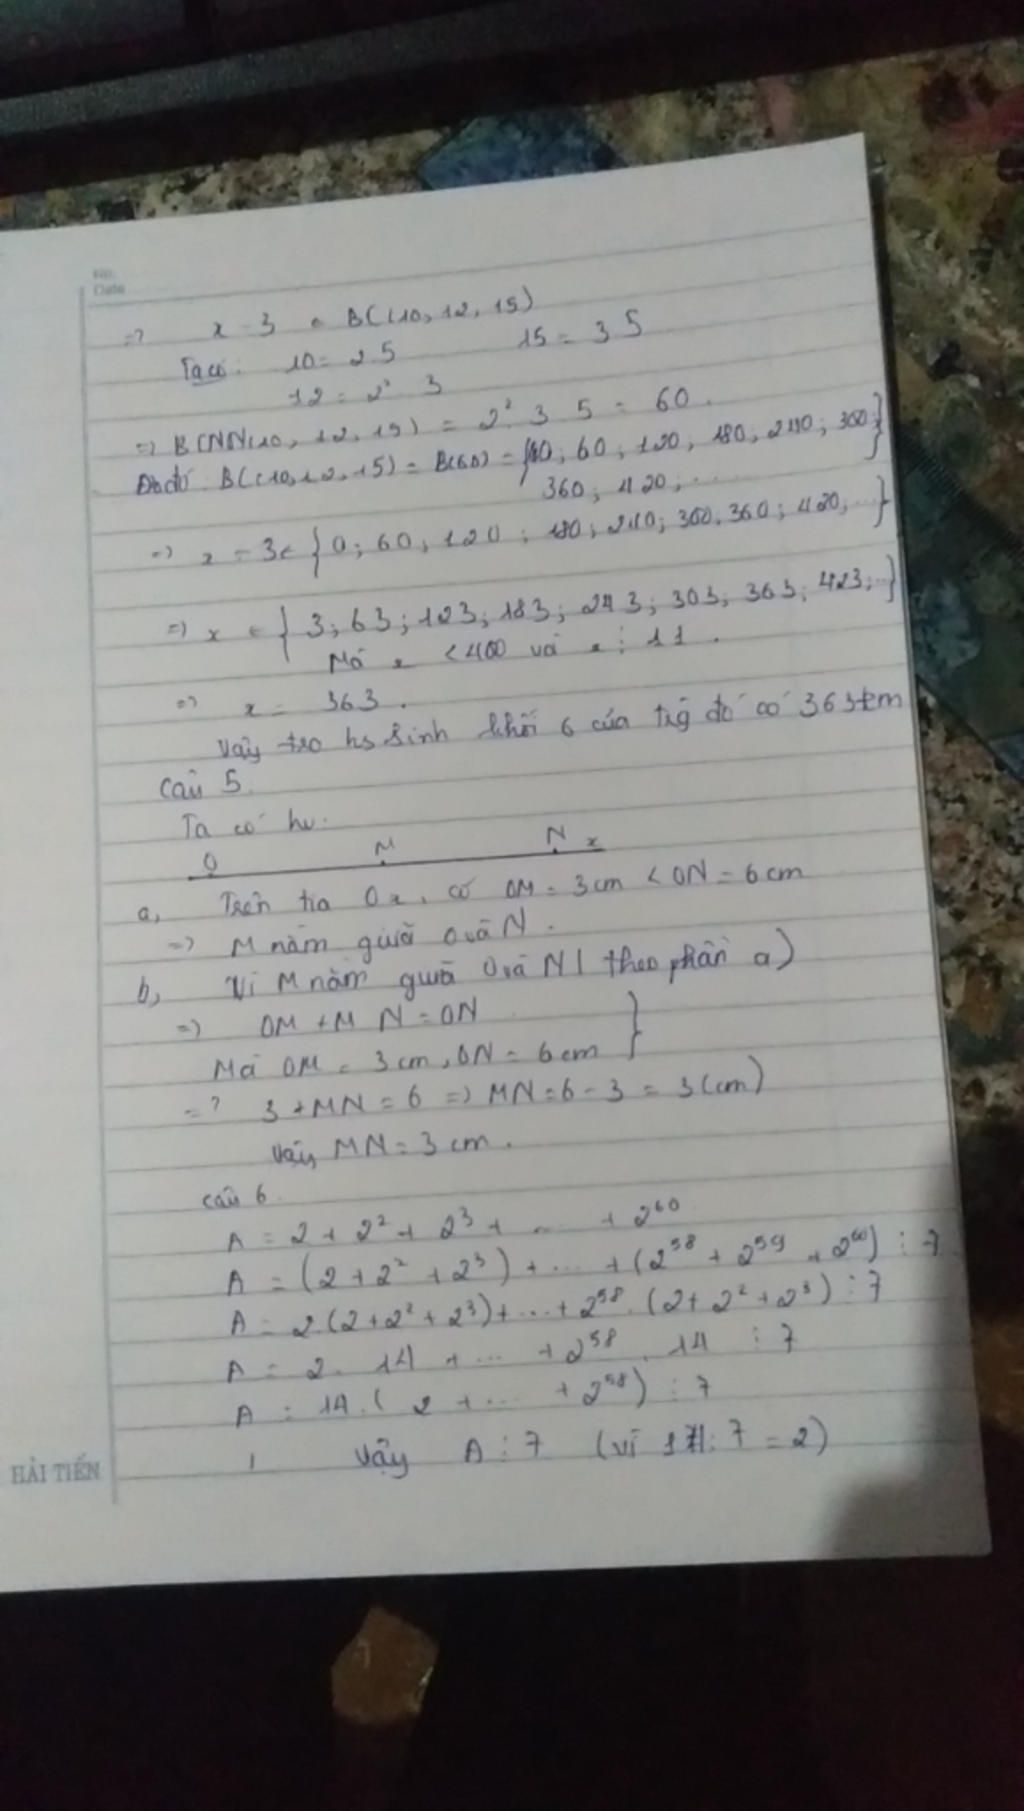 No.
Date
=> x - 3 ∈ BC(10, 12, 15)
Ta có: 10 = 2.5 15 = 3.5
12 = 2².3
=> BCNN(10, 12, 15) = 2².3.5 = 60.
Do đó: BC(10,12,15) = B(60) = {0; 60; 120; 180; 240; 300;
360; 420; ...}
=> x - 3 ∈ {0; 60; 120; 180; 240; 300; 360; 420; ...}
=> x ∈ {3; 63; 123; 183; 243; 303; 363; 423; ...}
Mà x < 400 và x ⋮ 11.
=> x = 363.
Vậy hs khối 6 của trg đó có 363 em
Câu 5.
Ta có hv:
O M N x
a, Trên tia Ox, có OM = 3 cm < ON = 6 cm
=> M nằm giữa O và N.
b, Vì M nằm giữa O và N (theo phần a)
=> OM + MN = ON }
Mà OM = 3 cm, ON = 6 cm
=> 3 + MN = 6 => MN = 6 - 3 = 3 (cm)
Vậy MN = 3 cm.
Câu 6.
A = 2 + 2² + 2³ + ... + 2⁶⁰
A = (2 + 2² + 2³) + ... + (2⁵⁸ + 2⁵⁹ + 2⁶⁰) ⋮ 7
A = 2.(2 + 2² + 2³) + ... + 2⁵⁸.(2 + 2² + 2³) ⋮ 7
A = 2. 14 + ... + 2⁵⁸. 14 ⋮ 7
A = 14.(2 + ... + 2⁵⁸) ⋮ 7
Vậy A ⋮ 7 (vì 14: 7 = 2)
HẢI TIẾN